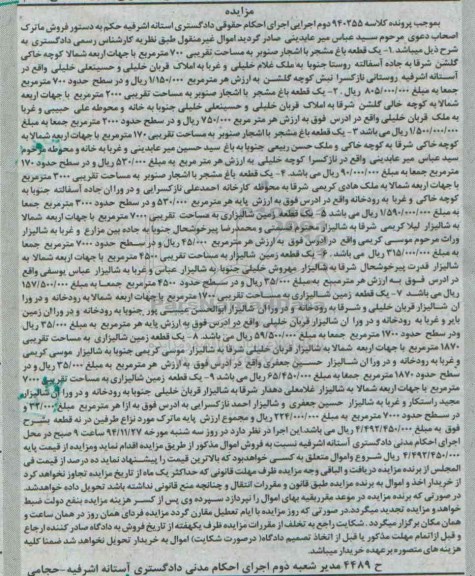 مزایده
بموجب پرونده کلاسه ۹۴۰۲۵۵ دوم اجرایی اجرای احکام حقوقی دادگستری آستانه اشرفیه حکم به دستور فروش ماترک
اصحاب دعوی مرحوم سید عباس میر عابدینی صادر گردید اموال غیرمنقول طبق نظریه کارشناس رسمی دادگستری به
شرح ذیل میباشد. ۱- یک قطعه باغ مشجر با اشجار صنوبر به مساحت تقریبی ۷۰۰ مترمربع با جهات اربعه شمالا کوچه خاکی
گلشن شرقا به جاده آسفالته روستا جنوبا به ملک غلام خلیلی و غربا به املاک قربان خلیلی و حسینعلی خلیلی واقع در
آستانه اشرفیه روستائی نازکسرا نبش کوچه گلشن به ارزش هر مترمربع ۱/۱۵۰/۰۰۰ ریال و در سطح حدود ۷۰۰ مترمربع
جمعا به مبلغ ۸۰۵/۰۰۰/۰۰۰ ریال. ۲- یک قطعه باغ مشجر با اشجار صنوبر به مساحت تقریبی ۲۰۰۰ مترمربع با جهات اربعه
شمالا به کوچه خالی گلشن شرقا به املاک قربان خلیلی و حسینعلی خلیلی جنوبا به خانه و محوطه علی حبیبی و غربا
به ملک قربان خلیلی واقع در آدرس فوق به ارزش هر متر مربع ۷۵۰/۰۰۰ ریال و در سطح حدود ۲۰۰۰ مترمربع جمعا به مبلغ
۱/۵۰۰/۰۰۰/۰۰۰ ریال می باشد ۳- یک قطعه باغ مشجر با اشجار صنوبر به مساحت تقریبی ۱۷۰ مترمربع با جهات اربعه شمالا به
کوچه خاکی شرقا به کوچه خاکی و ملک حسن ربیعی جنوبا به باغ سید حسین میر عابدینی و غربا به خانه و محوطه مرحوم
سید عباس میر عابدینی واقع در نازکسرا کوچه خلیلی به ارزش هر متر مربع به مبلغ ۵۳۰/۰۰۰ ریال و در سطح حدود ۱۷۰
مترمربع جمعا به مبلغ ۹۰/۰۰۰/۰۰۰ ریال می باشد. ۴- یک قطعه باغ مشجر با اشجار صنوبر به مساحت تقریبی ۳۰۰۰ مترمربع
با جهات اربعه شمالا به ملک هادی کریمی شرقا به محوطه کارخانه احمدعلی نازکسرایی و در وران جاده آسفالته جنوبا به
کوچه خاکی و غربا به رودخانه واقع در آدرس فوق به ارزش پایه هر مترمربع ۵۳۰/۰۰۰ و در سطح حدود ۳۰۰۰ مترمربع جمعا
به مبلغ ۱/۵۹۰/۰۰۰/۰۰۰ ریال می باشد ۵- یک قطعه زمین شالیزاری به مساحت تقریبی ۷۰۰۰ مترمربع با جهات اربعه شمالا
به شالیزار لیلا کریمی شرقا به شالیزار محترم و محمدرضا پیرخوشحال جنوبا به جاده بین مزارع و غربا به شالیزار
وراث مرحوم موسی کریمی واقع در آدرس فوق به ارزش هر مترمربع ۴۵/۰۰۰ ریال و در سطح حدود ۷۰۰۰ مترمربع جمعا
به مبلغ ۳۱۵/۰۰۰/۰۰۰ ریال می باشد. ۶- یک قطعه زمین شالیزار به مساحت تقریبی ۴۵۰۰ مترمربع با جهات اربعه شمالا به
شالیزار قدرت پیرخوشحال شرقا به شالیزار مهروش خلیلی جنوبا به شالیزار عباس و غربا به شالیزار عباس یوسفی واقع
در آدرس فوق به ارزش هر مترمربع به مبلغ ۳۵/۰۰۰ ریال و در سطح حدود ۴۵۰۰ مترمربع جمعا به مبلغ ۱۵۷/۵۰۰/۰۰۰
ریال می باشد ۷- یک قطعه زمین شالیزاری به مساحت تقریبی ۱۷۰۰ مترمربع با جهات اربعه شمالا به رودخانه و در ورا
ان شالیزار قربان خلیلی و شرقا به رودخانه و در ورا ان شالیزار ابوالحسن پور جنوبا به رودخانه و در ورا ان زمین
بایر و غربا به رودخانه و در ورا ان شالیزار قربان خلیلی واقع در آدرس فوق به ارزش پایه هر مترمربع به مبلغ ۳۵/۰۰۰ ریال
و در سطح حدود ۱۷۰۰ مترمربع جمعا به مبلغ ۵۹/۵۰۰/۰۰۰ ریال می باشد. ۸- یک قطعه زمین شالیزاری به مساحت تقریبی
۱۸۷۰ مترمربع با جهات اربعه شمالا به شالیزار قربان خلیلی شرقا به شالیزار موسی کریمی جنوبا به شالیزار موسی کریمی
و غربا به رودخانه و در ورا ان شالیزار حسین جعفری واقع در آدرس فوق به ارزش هر مترمربع به مبلغ ۳۵/۰۰۰ ریال و در
سطح حدود ۱۸۷۰ مترمربع جمعا به مبلغ ۶۵/۴۵۰/۰۰۰ ریال می باشد ۹- یک قطعه زمین شالیزاری به مساحت تقریبی ۷۰۰۰
مترمربع با جهات اربعه شمالا به شالیزار غلامعلی دهدار شرقا به شالیزار قربان خلیلی جنوبا به رودخانه و در ورا ان شالیزار
مجید راستکار و غربا به شالیزار حسین جعفری و شالیزار احمد نازکسرایی به آدرس فوق به ازا هر مترمربع مبلغ ۳۲/۰۰۰ و
در سطح حدود ۷۰۰۰ مترمربع به مبلغ ۲۲۴/۰۰۰/۰۰۰ ریال و مجموع ارزش پایه ماترک مورد نزاع طرفین در نه قطعه بشرح
فوق به مبلغ ۴/۴۹۲/۴۵۰/۰۰۰ ریال می باشد، این اجرا در نظر دارد در روز سه شنبه مورخه ۹۴/۱۱/۲۷ ساعت ۹ صبح در محل
اجرای احکام مدنی دادگستری آستانه اشرفیه نسبت به فروش اموال مذکور از طریق مزایده اقدام نماید و مزایده از قیمت پایه
۴/۴۹۲/۴۵۰/۰۰۰ ریال شروع و اموال متعلق به کسی خواهد بود که بالاترین قیمت را پیشنهاد نماید ده درصد از قیمت فی
المجلس از برنده مزایده دریافت و الباقی وجه مزایده ظرف مهلت قانونی که حداکثر یک ماه از تاریخ مزایده تجاوز نخواهد کرد
از خریدار اخذ و اموال به برنده مزایده طبق قانون و مقررات انتقال و چنانچه منع قانونی نداشته باشد تحویل داده خواهد شد.
در صورتی که برنده مزایده در موعد مقرر بقیه بهای اموال را نپردازد سپرده وی پس از کسر هزینه مزایده بنفع دولت ضبط
خواهد و مزایده تجدید میگردد در صورتی که روز مزایده با ایام تعطیل مقارن گردد مزایده فردای همان روز در همان ساعت و
همان مکان برگزار میگردد. شکایت راجع به تخلف از مقررات مزایده ظرف یکهفته از تاریخ فروش به دادگاه صادر کننده ارجاع
و قبل از اتمام مهلت مذکور یا قبل از اتخاذ تصمیم دادگاه (درصورت شکایت) اموال به خریدار تحویل نخواهد شد ضمنا کلیه
هزینه های متصوره برعهده خریدار میباشد.
ح ۴۴۸۹ مدیر شعبه دوم اجرای احکام مدنی دادگستری آستانه اشرفیه-حجامی